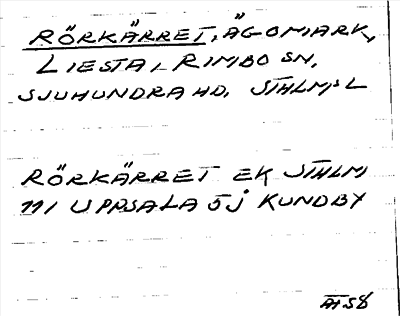 RÖRKÄRRET, ÄGOMARK,
LIESTA, RIMBO SN,
SJUHUNDRA HD, STHLMS L
RÖRKÄRRET EK STHLM
111 UPPSALA 5j KUNDBY